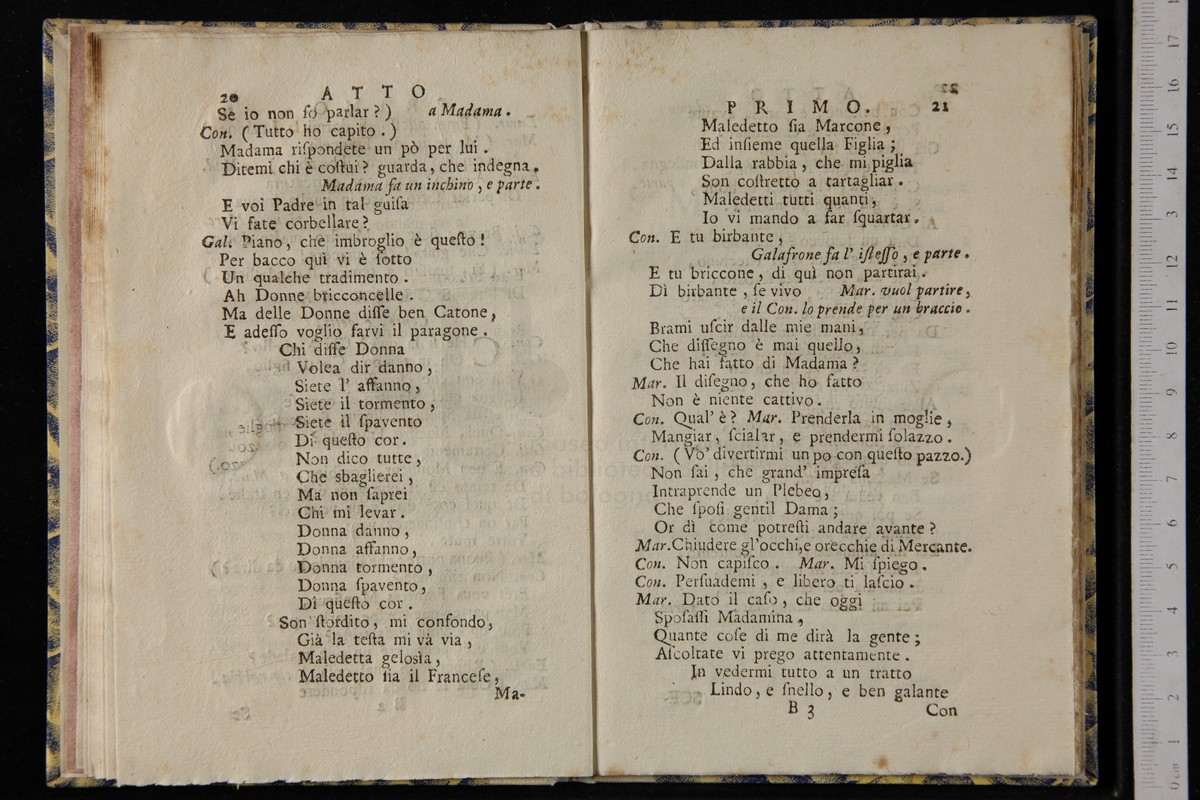 20 ATTO
Se io non ſo parlar ? ) a Madama .
Con. ( Tutto ho capito . )
Madama riſpondete un pò per lui .
Ditemi chi è coſtui ? guarda, che indegna .
Madama fa un inchino , e parte .
E voi Padre in tal guiſa
Vi fate corbellare ?
Gal. Piano , che imbroglio è queſto !
Per bacco quì vi è ſotto
Un qualche tradimento .
Ah Donne bricconcelle .
Ma delle Donne diſſe ben Catone,
E adeſſo voglio farvi il paragone .
Chi diſſe Donna
Volea dir danno ,
Siete l' affanno ,
Siete il tormento ,
Siete il ſpavento
Di queſto cor .
Non dico tutte ,
Che sbaglierei ,
Ma non ſaprei
Chi mi levar .
Donna danno ,
Donna affanno ,
Donna tormento ,
Donna ſpavento ,
Di queſto cor .
Son ſtordito , mi confondo,
Già la teſta mi và via ,
Maledetta gelosìa ,
Maledetto ſia il Franceſe ,
Ma-
PRIMO. 21
Maledetto ſia Marcone ,
Ed inſieme quella Figlia ;
Dalla rabbia , che mi piglia
Son coſtretto a tartagliar .
Maledetti tutti quanti,
Io vi mando a far ſquartar .
Con. E tu birbante ,
Galafrone fa l' iſteſſo , e parte .
E tu briccone , di quì non partirai .
Dì birbante , ſe vivo Mar. vuol partire ,
e il Con. lo prende per un braccio .
Brami uſcir dalle mie mani,
Che diſſegno è mai quello,
Che hai fatto di Madama ?
Mar. Il diſegno, che ho fatto
Non è niente cattivo .
Con. Qual' è ? Mar. Prenderla in moglie ,
Mangiar , ſcialar , e prendermi ſolazzo .
Con. ( Vo' divertirmi un po con queſto pazzo.)
Non ſai , che grand' impreſa
Intraprende un Plebeo,
Che ſpoſi gentil Dama ;
Or dì come potreſti andare avante ?
Mar.Chiudere gl'occhi,e orecchie di Mercante.
Con. Non capiſco . Mar. Mi ſpiego .
Con. Perſuademi , e libero ti laſcio .
Mar. Dato il caſo , che oggi
Spoſaſſi Madamina ,
Quante coſe di me dirà la gente ;
Aſcoltate vi prego attentamente .
In vedermi tutto a un tratto
Lindo , e ſnello , e ben galante
B 3 Con